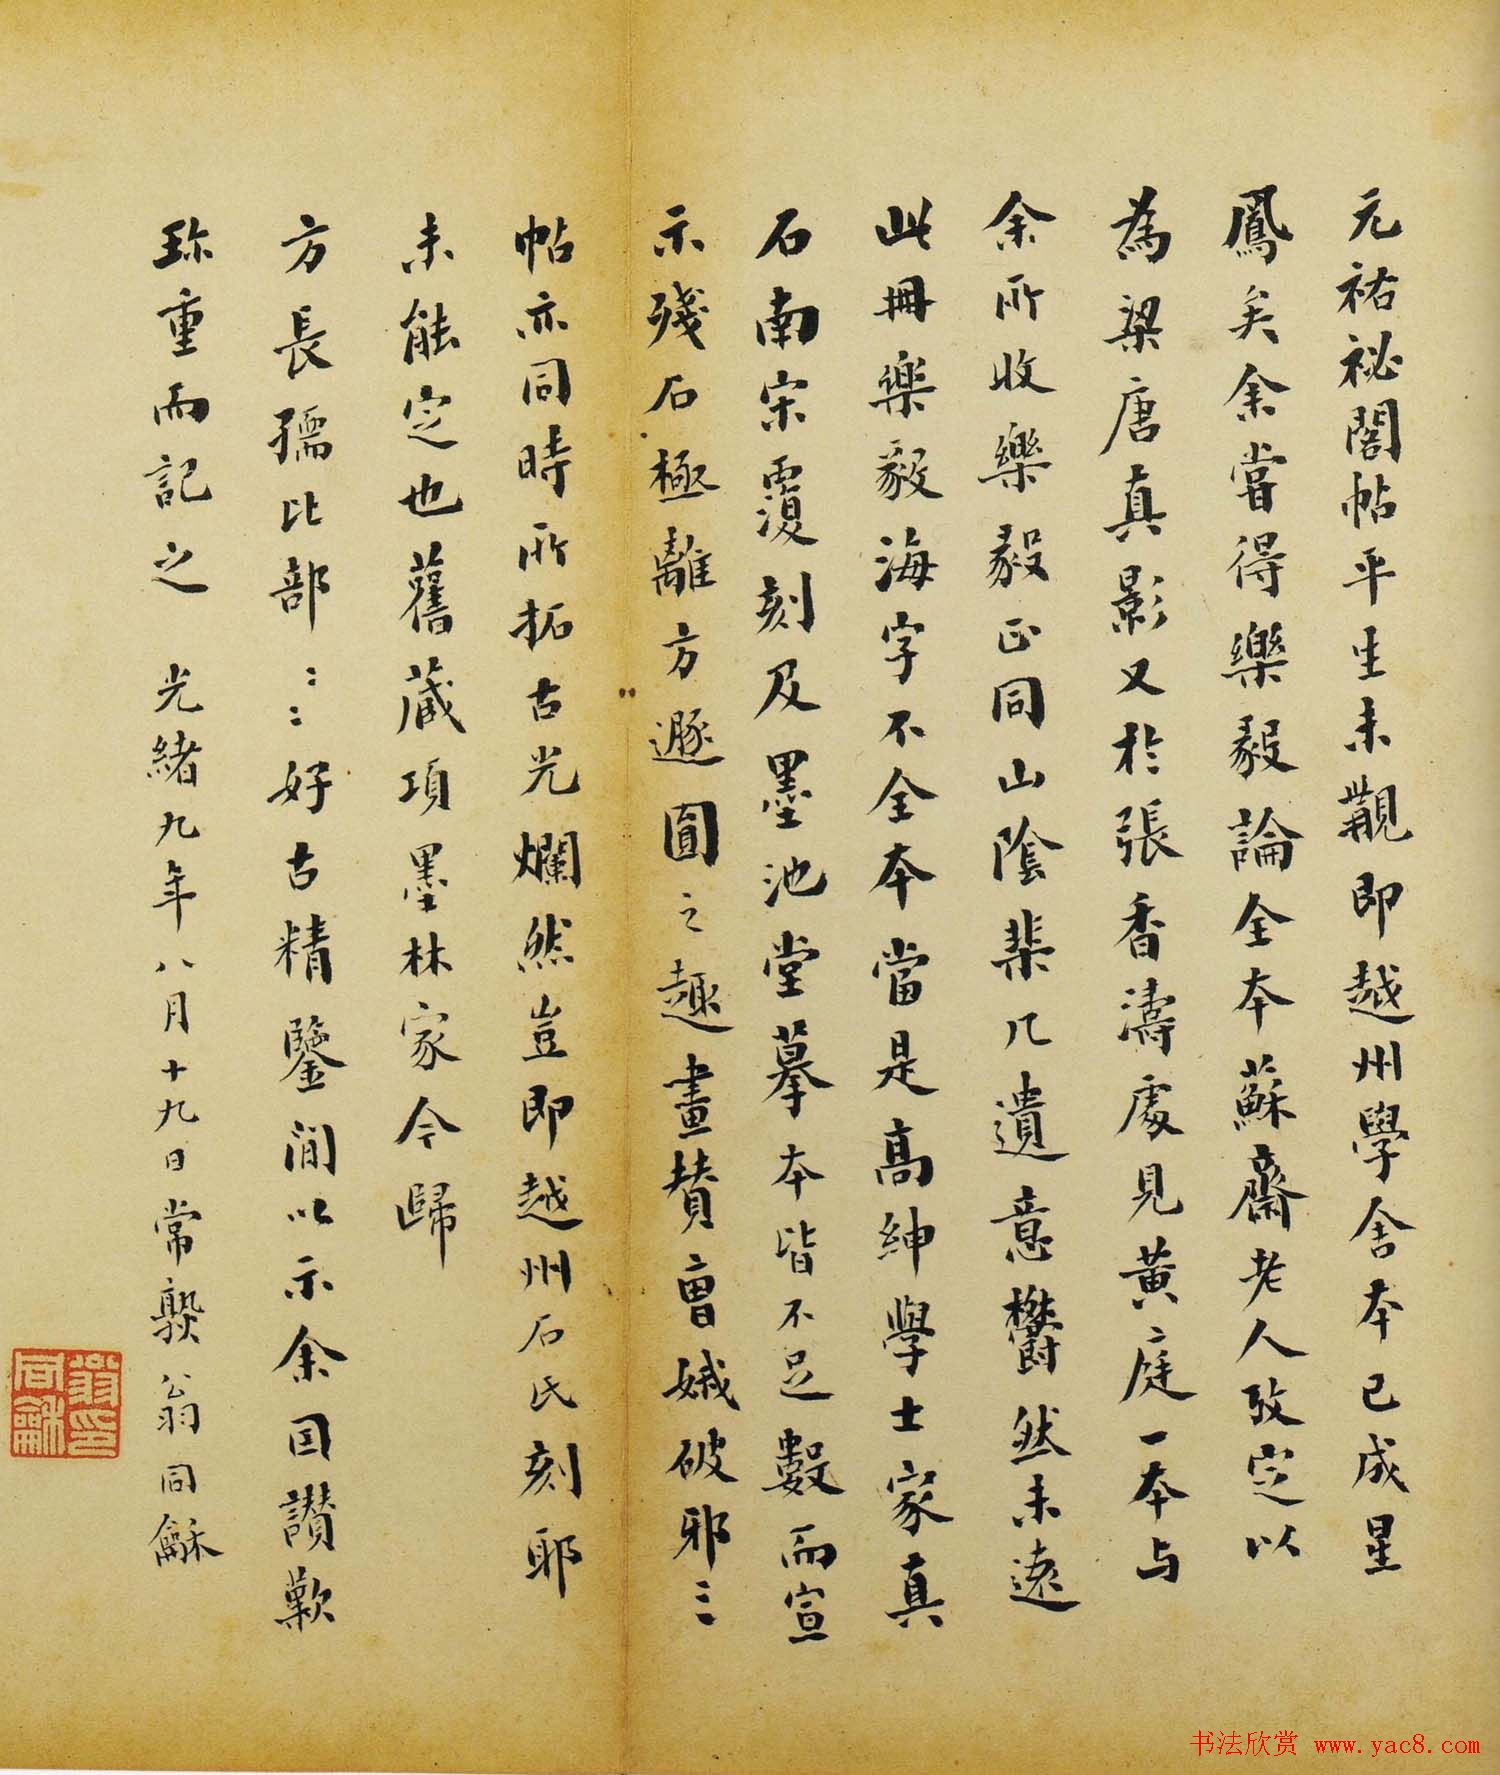 元祐祕閣帖平生未覯即越州學舍本已成星
鳳矣余嘗得樂毅論全本蘇齋老人攷定以
為梁唐真影又於張香濤處見黃庭一本与
余所收樂毅正同山陰棐几遺意欝然未遠
此冊樂毅海字不全本當是高紳學士家真
石南宋覆刻及墨池堂摹本皆不足數而宣
示殘石極離方遯圓之趣畫賛曹娥破邪三
帖亦同時所拓古光爛然豈即越州石氏刻耶
未能定也舊藏項墨林家今歸
方長孺比部〻〻好古精鑒閒以示余因讃歎
珎重而記之 光緒九年八月十九日常熟翁同龢
翁印同龢
书法欣赏 www.yac8.com